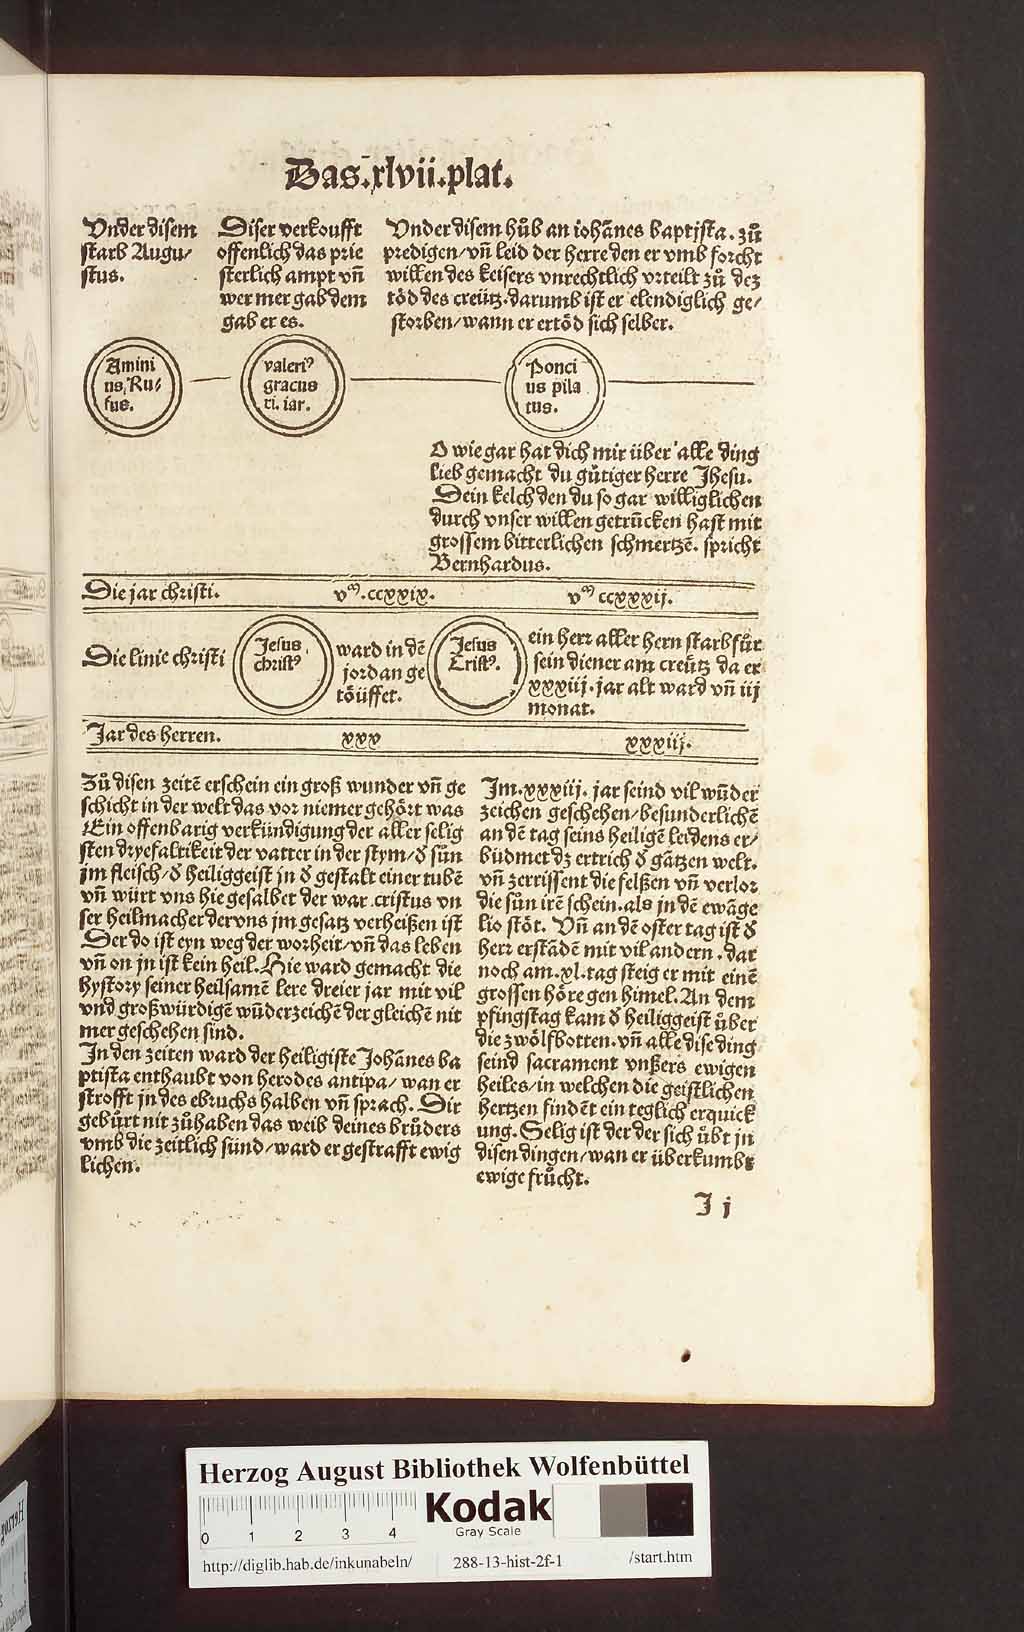 Das .xlvii. plat.
Vnder disem
starb Augu/
stus.
Diser verkoufft
offenlich das prie
sterlich ampt vñ
wer mer gab dem
gab er es.
Vnder disem hůb an iohãnes baptista. zů
predigen/vñ leid der herre den er vmb forcht
willen des keisers vnrechtlich vrteilt zů dez
tôd des creütz. darumb ist er elendiglich ge/
storben/wann er ertôd sich selber.
Amini
us, Ru/
fus.
valeriꝰ
gracus
ri. iar.
Ponci
us pila
tus.
O wie gar hat dich mir über alle ding
lieb gemacht du gůtiger herre Jhesu.
Dein kelch den du so gar williglichen
durch vnser willen getrũcken hast mit
grossem bitterlichen schmertzẽ. spricht
Bernhardus.
Die jar christi. vᵐ.ccxxix. vᵐ ccxxxij.
Die linie christi
Jesus
christꝰ.
ward in dẽ
jordan ge
tôüffet.
Jesus
Cristꝰ.
ein herr aller hern starb für
sein diener am creütz da er
xxxiij. jar alt ward vñ iij
monat.
Jar des herren. xxx xxxiij.
Zů disen zeitẽ erschein ein groß wunder vñ ge
schicht in der welt das vor niemer gehôrt was
Ein offenbarig verkündigung der aller selig
sten dryefaltikeit der vatter in der stym/ď sün
im fleisch/ď heiliggeist jn ď gestalt einer tubẽ
vñ würt vns hie gesalbet der war cristus vn
ser heilmacher der vns jm gesatz verheißen ist
Der do ist eyn weg der worheit/vñ das leben
vñ on jn ist kein heil. Hie ward gemacht die
hystory seiner heilsamẽ lere dreier jar mit vil
vnd großwürdigẽ wũderzeichẽ der gleichẽ nit
mer geschehen sind.
In den zeiten ward der heiligiste Johãnes ba
ptista enthaubt von herodes antipa/ wan er
strofft jn des ebruchs halben vñ sprach. Dir
gebürt nit zůhaben das weib deines brüders
vmb die zeitlich sünd/ward er gestrafft ewig
lichen.
Im .xxxiij. jar seind vil wũder
zeichen geschehen/besunderlichẽ
an dẽ tag seins heiligẽ leidens er/
büdmet dz ertrich ď gãtzen welt.
vñ zerrissent die felßen vñ verlor
die sůn irẽ schein. als jn dẽ ewãge
lio stôt. Vñ an dẽ oster tag ist ď
herr erstãdẽ mit vil andern. dar
noch am .xl. tag steig er mit einẽ
grossen hôre gen himel. An dem
pfingstag kam ď heiliggeist über
die zwôlfbotten. vñ alle dise ding
seind sacrament vnßers ewigen
heiles/in welchen die geistlichen
hertzen findẽt ein teglich erquick
ung. Selig ist der der sich übt jn
disen dingen/wan er überkumbt
ewige frücht.
I j
Herzog August Bibliothek Wolfenbüttel
0 1 2 3 4
Kodak
Gray Scale
http://diglib.hab.de/inkunabeln/ 288-13-hist-2f-1 /start.htm